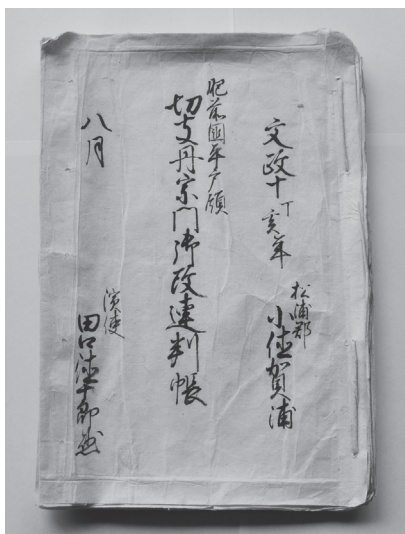 文政十丁亥年
松浦郡
小値賀浦
肥前國平戸領
切支丹宗門御改連判帳
八月
濱邊